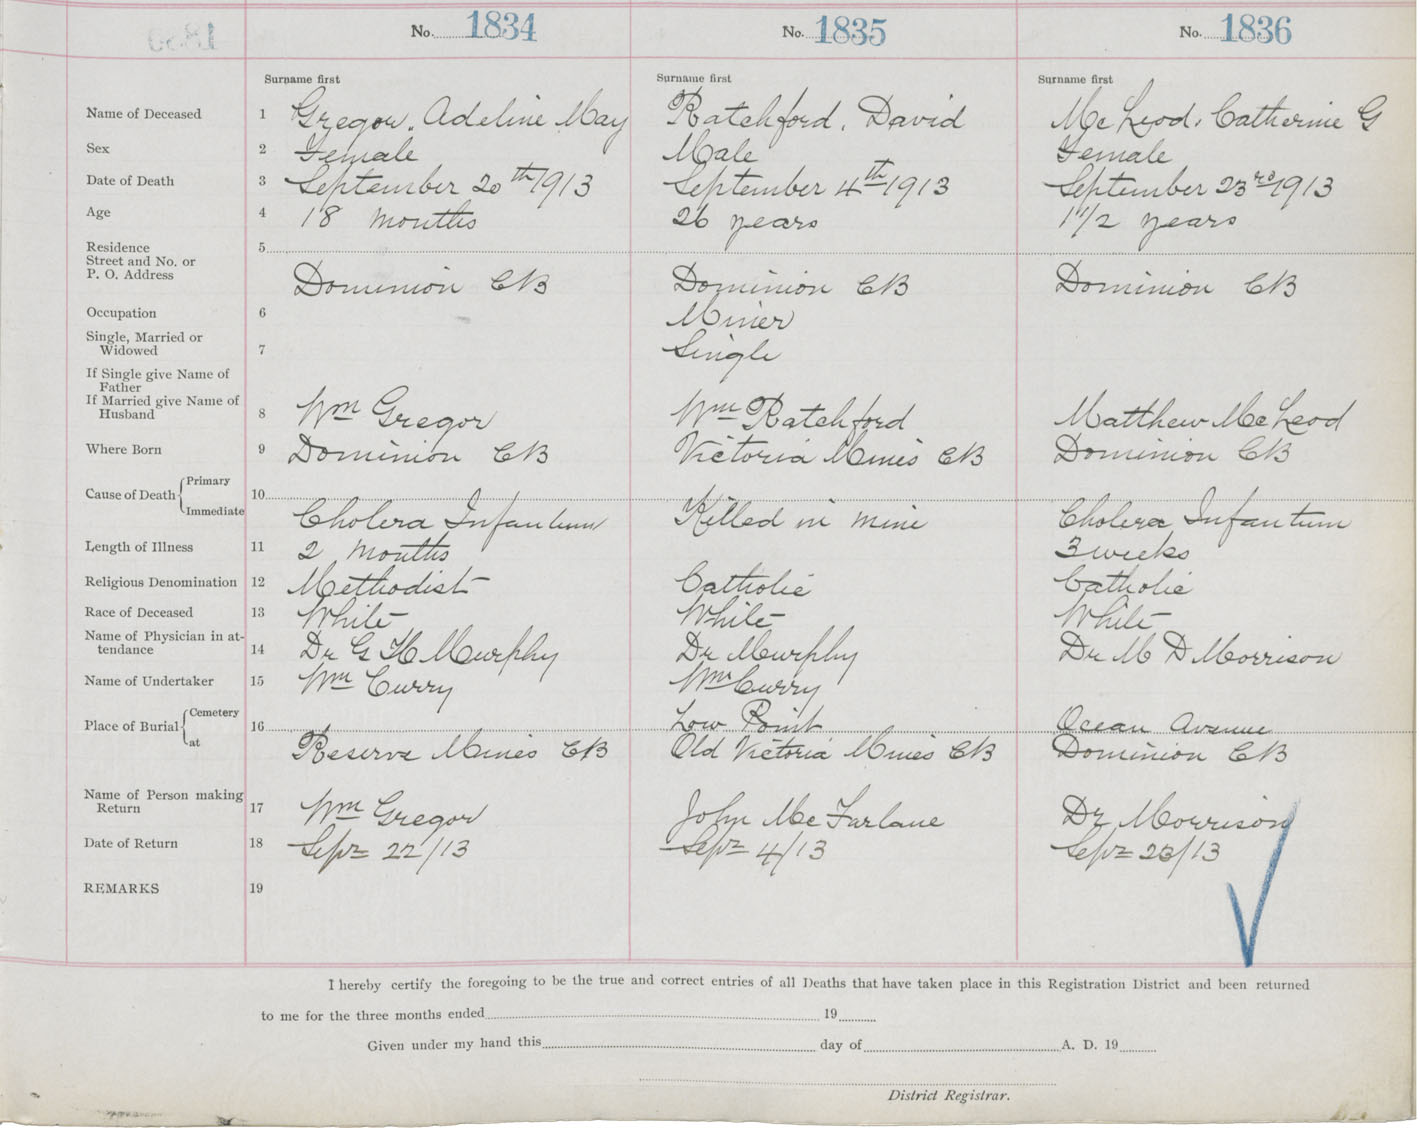 No. 1834 No. 1835 No. 1836
Surname first Surname first Surname first
Name of Deceased 1 Gregor, Adeline May Ratchford, David McLeod, Catherine G
Sex 2 Female Male Female
Date of Death 3 September 20th 1913 September 4th 1913 September 23rd 1913
Age 4 18 months 26 years 1 1/2 years
Residence 5
Street and No. or
P. O. Address Dominion CB Dominion CB Dominion CB
Occupation 6 Miner
Single, Married or
Widowed 7 Single
If Single give Name of
Father
If Married give Name of
Husband 8 Wm Gregor Wm Ratchford Matthew McLeod
Where Born 9 Dominion CB Victoria Mines CB Dominion CB
Cause of Death Primary 10
Immediate Cholera Infantum Killed in mine Cholera Infantum
Length of Illness 11 2 months 3 weeks
Religious Denomination 12 Methodist Catholic Catholic
Race of Deceased 13 White White White
Name of Physician in at-
tendance 14 Dr G H Murphy Dr Murphy Dr M D Morrison
Name of Undertaker 15 Wm Curry Wm Curry
Place of Burial Cemetery 16 Low Point Ocean Avenue
at Reserve Mines CB Old Victoria Mines CB Dominion CB
Name of Person making
Return 17 Wm Gregor John McFarlane Dr Morrison
Date of Return 18 Sept 22/13 Sept 4/13 Sept 23/13
REMARKS 19
I hereby certify the foregoing to be the true and correct entries of all Deaths that have taken place in this Registration District and been returned
to me for the three months ended 19
Given under my hand this day of A. D. 19
District Registrar.